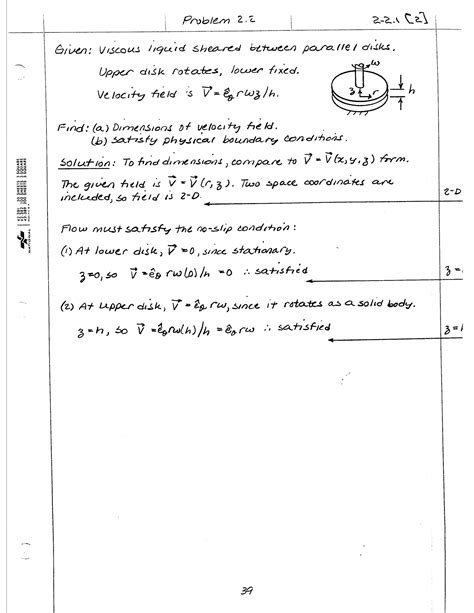 Problem 2.2
2-2.1 [2]
Given: Viscous liquid sheared between parallel disks.
Upper disk rotates, lower fixed.
Velocity field is V⃗ = ê_θ rωz/h.
ω
z
r
h
Find: (a) Dimensions of velocity field.
(b) Satisfy physical boundary conditions.
Solution: To find dimensions, compare to V⃗ = V⃗(x,y,z) form.
The given field is V⃗ = V⃗(r,z). Two space coordinates are
included, so field is 2-D.
2-D
Flow must satisfy the no-slip condition:
(1) At lower disk, V⃗ = 0, since stationary.
z=0, so V⃗ = ê_θ rω(0)/h = 0 ∴ satisfied
z=
(2) At upper disk, V⃗ = ê_θ rω, since it rotates as a solid body.
z=h, so V⃗ = ê_θ rω(h)/h = ê_θ rω ∴ satisfied
z=h
39